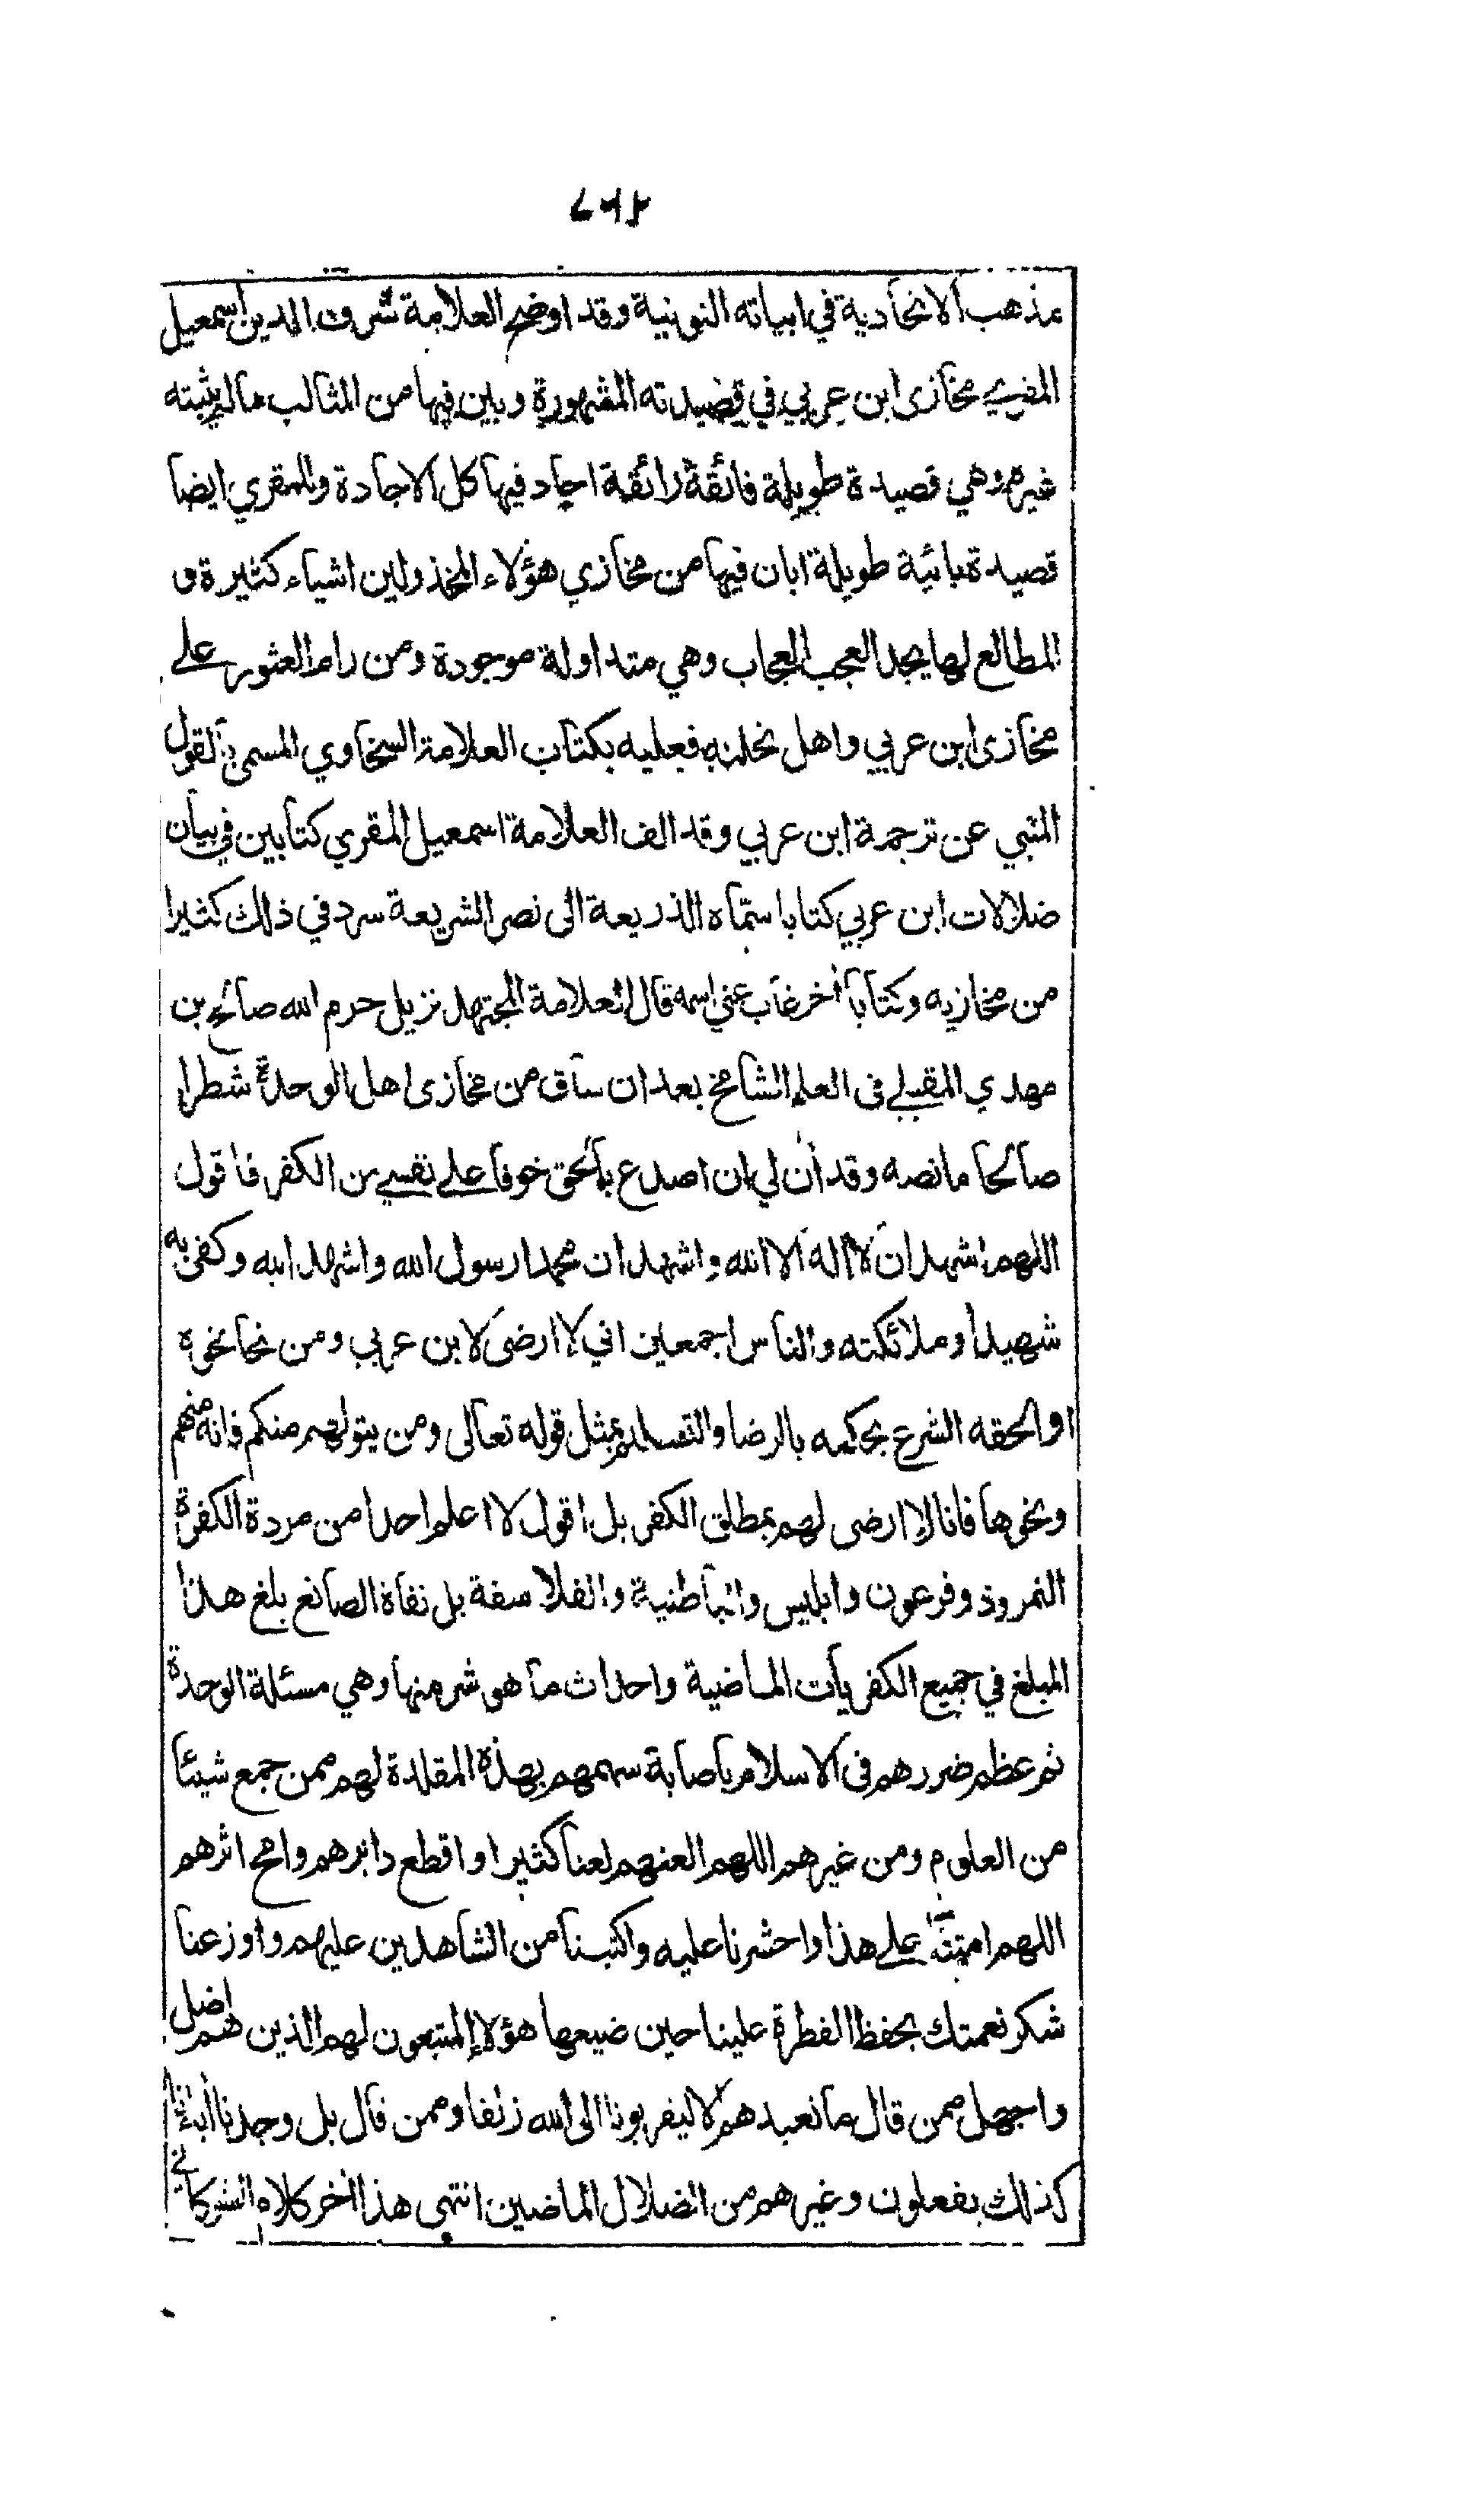 مذهب الاتحادية في ابياته النونية وقد اوضح العلامة شرف الدين اسمعيل
المقري مخازى ابن عربي في قصيدته المشهورة وبين فيها من المثالب ما لم يثبته
غيره وهي قصيدة طويلة فائقة رائقة اجاد فيها كل الاجادة وللمقري ايضا
قصيدة بائية طويلة ابان فيها من مخازي هؤلاء المخذولين اشياء كثيرة و
المطالع لها يجد العجب العجاب وهي متداولة موجودة ومن رام العثور على
مخازى ابن عربي واهل نحلته فعليه بكتاب العلامة السخاوي المسمى بالقول
المنبي عن ترجمة ابن عربي وقد الف العلامة اسمعيل المقري كتابين في بيان
ضلالات ابن عربي كتابا سماه الذريعة الى نصر الشريعة سرد في ذلك كثيرا
من مخازيه وكتابا آخر غاب عني اسمه قال العلامة المجتهد نزيل حرم الله صالح بن
مهدي المقبلي فى العلم الشامخ بعد ان ساق من مخازى اهل الوحدة شطرا
صالحا ما نصه وقد آن لي ان اصدع بالحق خوفا على نفسي من الكفر فاقول
اللهم اشهد ان لا اله الا الله واشهد ان محمدا رسول الله واشهد الله وكفى به
شهيدا وملائكته والناس اجمعين اني لا ارضى لابن عربي ومن نحا نحوه
او الحقه الشرع بحكمه بالرضا والتسليم بمثل قوله تعالى ومن يتولهم منكم فانه منهم
ونحوها فانا لا ارضى لهم بمطلق الكفر بل اقول لا اعلم احدا من مردة الكفرة
النمروذ وفرعون وابليس والباطنية والفلاسفة بل نفاة الصانع بلغ هذا
المبلغ في جميع الكفريات الماضية واحداث ما هو شر منها وهي مسئلة الوحدة
ثم عظم ضررهم فى الاسلام باصابة سهمهم بهذه المقلدة لهم ممن جمع شيئا
من العلوم ومن غيرهم اللهم العنهم لعنا كثيرا واقطع دابرهم وامح اثرهم
اللهم امتنا على هذا واحشرنا عليه واكتبنا من الشاهدين عليهم واوزعنا
شكر نعمتك بحفظ الفطرة علينا حين ضيعها هؤلاء المتبعون لهم الذين هم اضل
واجهل ممن قال ما نعبدهم الا ليقربونا الى الله زلفا وممن قال بل وجدنا آباءنا
كذلك يفعلون وغيرهم من الضلال الماضين انتهى هذا آخر كلام الشوكاني